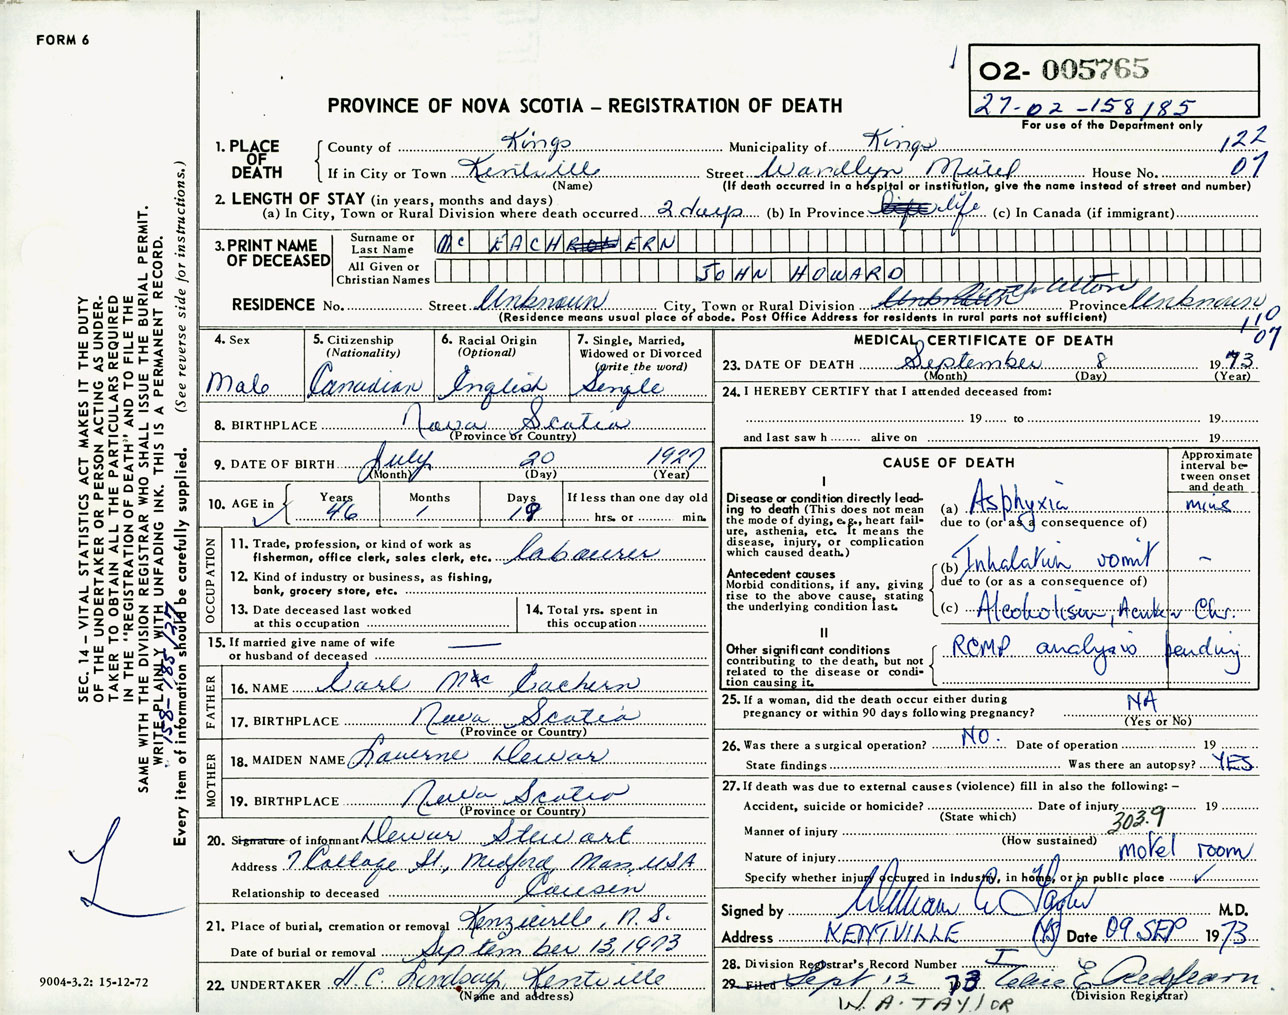 FORM 6
O2- 005765
27-02-158185
For use of the Department only
PROVINCE OF NOVA SCOTIA – REGISTRATION OF DEATH
122
07
1. PLACE OF DEATH
County of Kings Municipality of Kings
If in City or Town Kentville Street Wandlyn Motel House No.
(Name) (If death occurred in a hospital or institution, give the name instead of street and number)
2. LENGTH OF STAY (in years, months and days)
(a) In City, Town or Rural Division where death occurred 2 days (b) In Province life (c) In Canada (if immigrant)
3. PRINT NAME OF DECEASED
Surname or Last Name Mc EACHERN
All Given or Christian Names JOHN HOWARD
RESIDENCE No. Street Unknown City, Town or Rural Division Alton Province Unknown
(Residence means usual place of abode. Post Office Address for residents in rural parts not sufficient)
110
07
4. Sex 5. Citizenship (Nationality) 6. Racial Origin (Optional) 7. Single, Married, Widowed or Divorced (write the word)
Male Canadian English Single
8. BIRTHPLACE Nova Scotia
(Province or Country)
9. DATE OF BIRTH July 20 1927
(Month) (Day) (Year)
10. AGE in Years Months Days If less than one day old
46 1 19 hrs. or min.
OCCUPATION
11. Trade, profession, or kind of work as fisherman, office clerk, sales clerk, etc. labourer
12. Kind of industry or business, as fishing, bank, grocery store, etc.
13. Date deceased last worked at this occupation
14. Total yrs. spent in this occupation
15. If married give name of wife or husband of deceased —
FATHER
16. NAME Carl Mac Eachern
17. BIRTHPLACE Nova Scotia
(Province or Country)
MOTHER
18. MAIDEN NAME Laverne Dewar
19. BIRTHPLACE Nova Scotia
(Province or Country)
20. Signature of informant Dewar Stewart
Address 7 Cottage St., Medford, Mass, USA
Relationship to deceased Cousin
21. Place of burial, cremation or removal N.S.
Date of burial or removal September 13, 1973
22. UNDERTAKER H.C. Lindsay, Kentville
(Name and address)
MEDICAL CERTIFICATE OF DEATH
23. DATE OF DEATH September 8 1973
(Month) (Day) (Year)
24. I HEREBY CERTIFY that I attended deceased from:
19 to 19
and last saw h alive on 19
CAUSE OF DEATH
Approximate interval between onset and death
I
Disease or condition directly leading to death (This does not mean the mode of dying, e.g., heart failure, asthenia, etc. It means the disease, injury, or complication which caused death.)
(a) Asphyxia mins
due to (or as a consequence of)
Antecedent causes
Morbid conditions, if any, giving rise to the above cause, stating the underlying condition last.
(b) Inhalation vomit –
due to (or as a consequence of)
(c) Alcoholism, Acute & Chr.
II
Other significant conditions contributing to the death, but not related to the disease or condition causing it.
RCMP analysis pending
25. If a woman, did the death occur either during pregnancy or within 90 days following pregnancy? NA
(Yes or No)
26. Was there a surgical operation? NO. Date of operation 19
State findings Was there an autopsy? YES
27. If death was due to external causes (violence) fill in also the following: –
Accident, suicide or homicide? Date of injury 19
(State which)
303.9
Manner of injury
(How sustained)
Nature of injury motel room
Specify whether injury occurred in industry, in home, or in public place ✓
Signed by William A Taylor M.D.
Address KENTVILLE (NS) Date 09 SEP 1973
28. Division Registrar's Record Number I
29. Filed Sept 12 1973
(Division Registrar)
W. A. TAYLOR
SEC. 14 – VITAL STATISTICS ACT MAKES IT THE DUTY
OF THE UNDERTAKER OR PERSON ACTING AS UNDER-
TAKER TO OBTAIN ALL THE PARTICULARS REQUIRED
IN THE "REGISTRATION OF DEATH" AND TO FILE THE
SAME WITH THE DIVISION REGISTRAR WHO SHALL ISSUE THE BURIAL PERMIT.
WRITE PLAINLY WITH UNFADING INK. THIS IS A PERMANENT RECORD.
158-185/27
Every item of information should be carefully supplied. (See reverse side for instructions.)
9004-3.2: 15-12-72